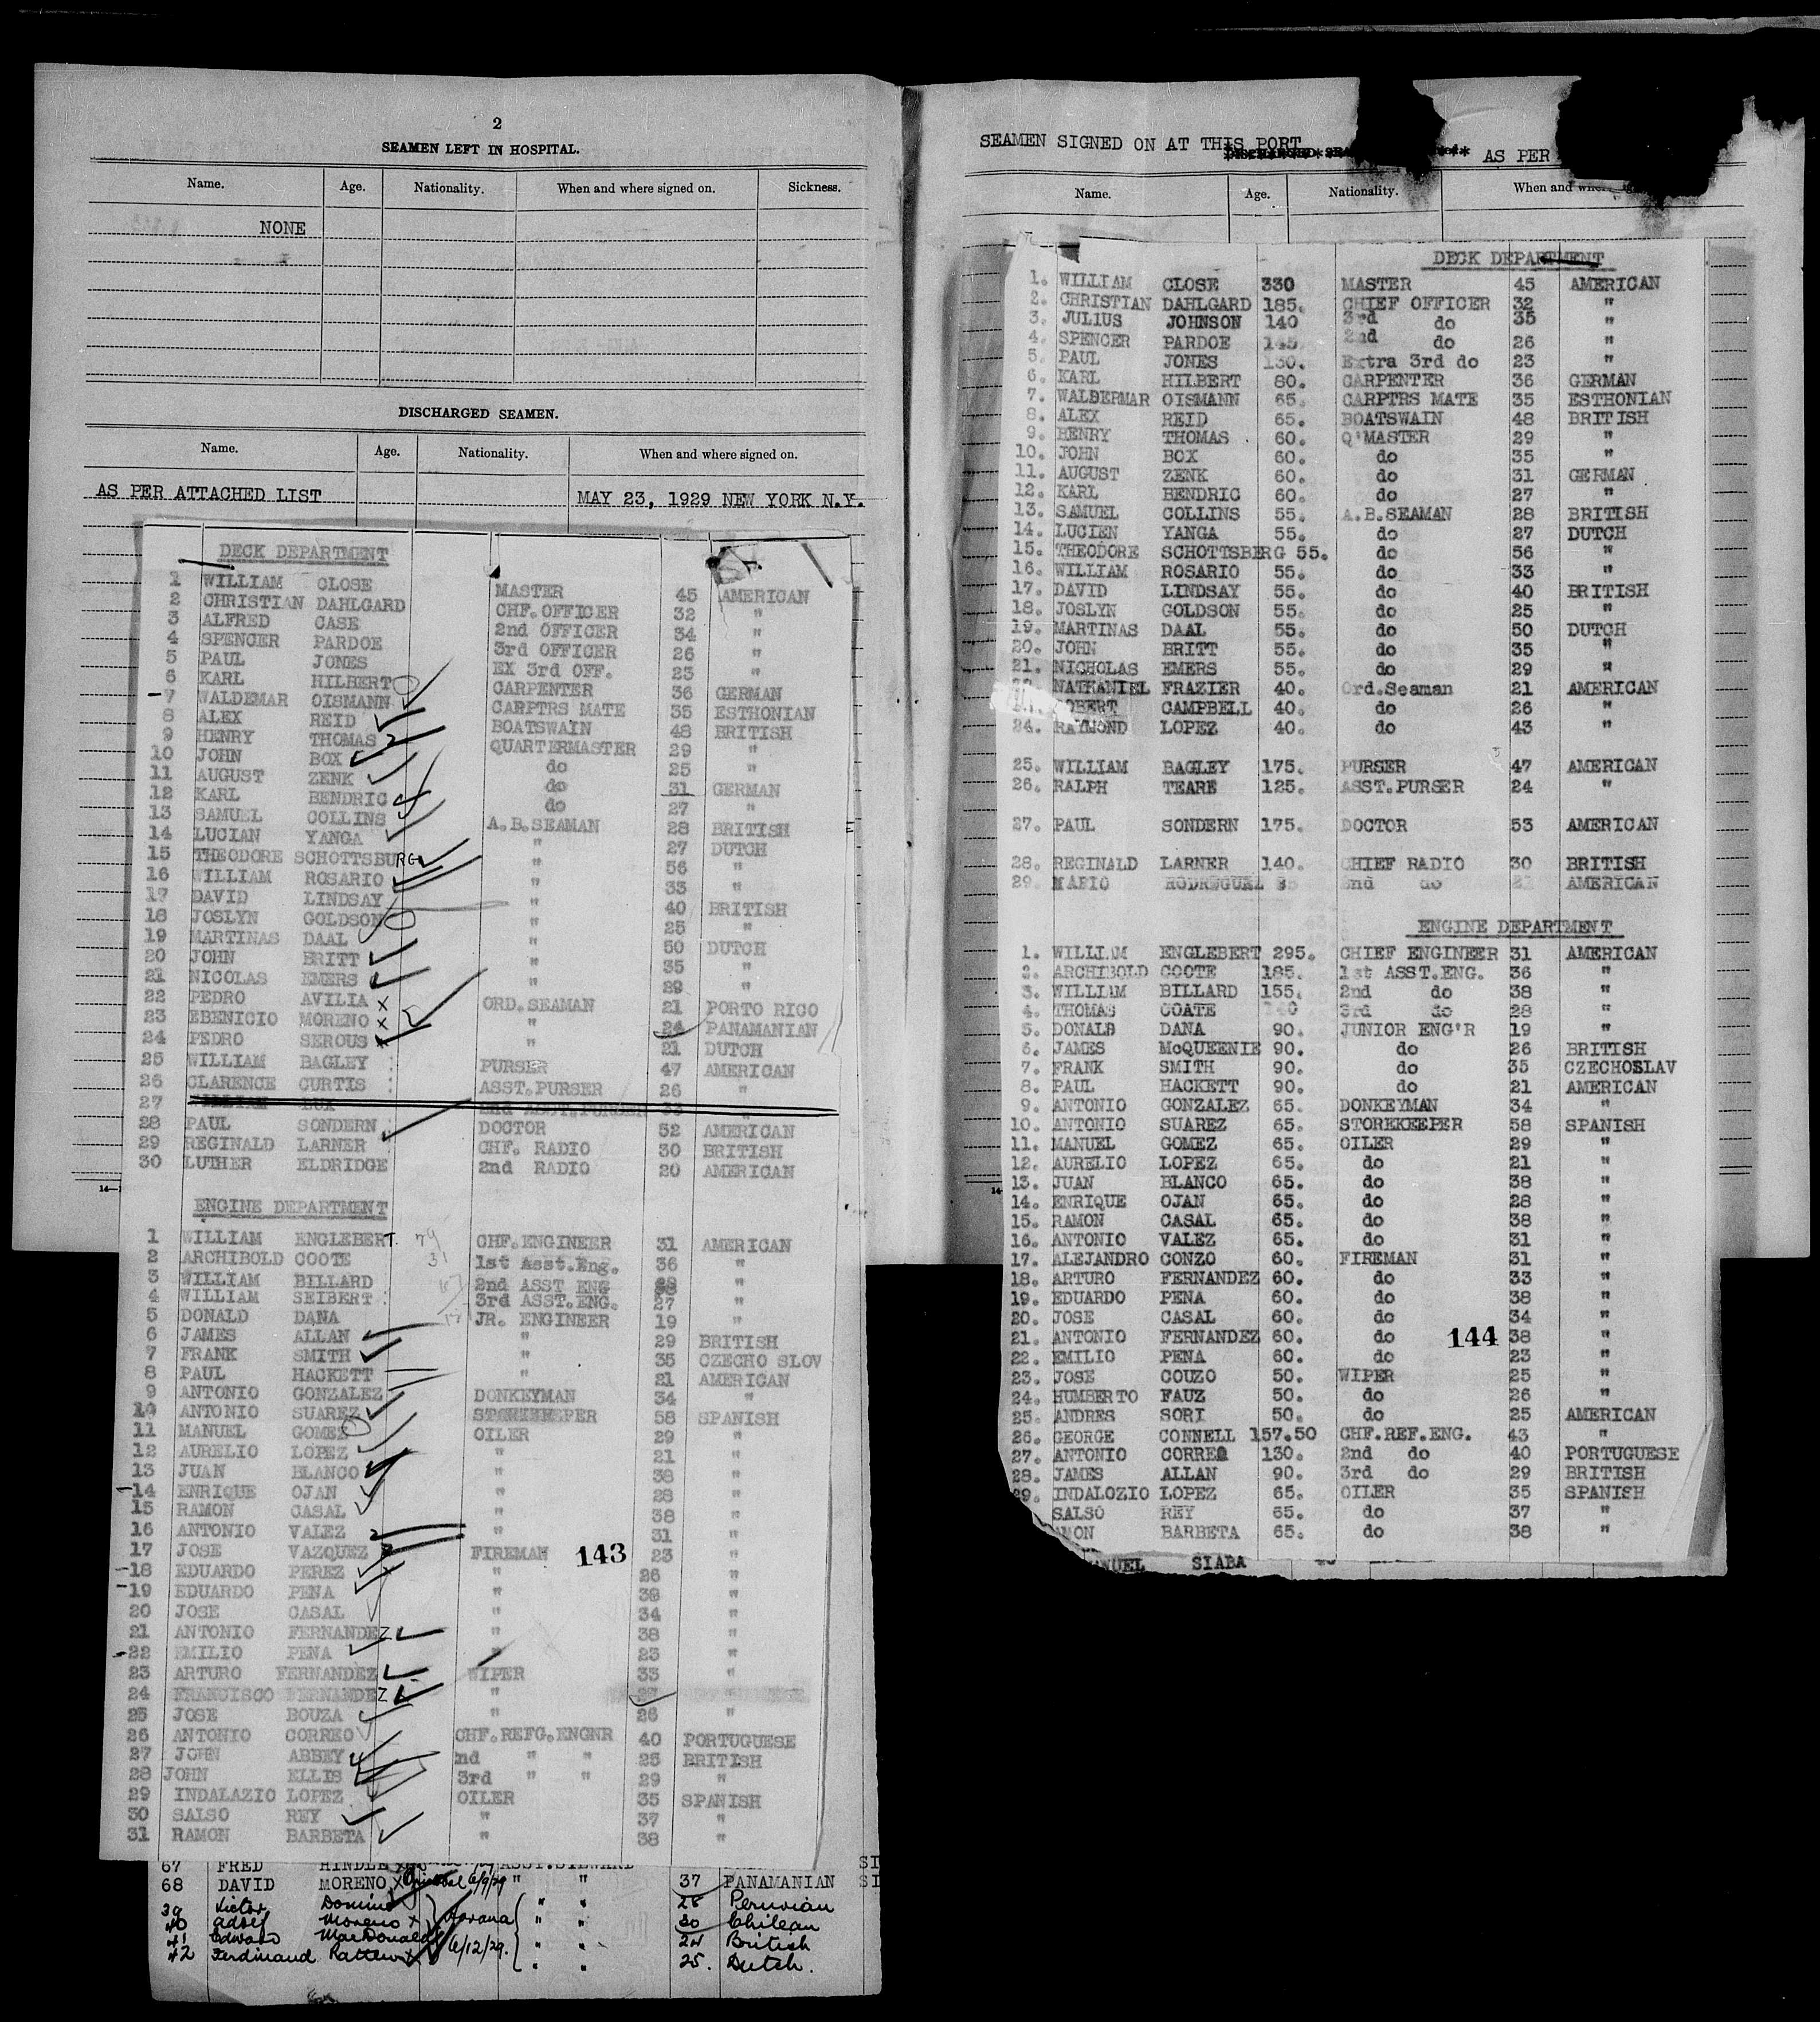 2
SEAMEN LEFT IN HOSPITAL.
Name. Age. Nationality. When and where signed on. Sickness.
NONE
DISCHARGED SEAMEN.
Name. Age. Nationality. When and where signed on.
AS PER ATTACHED LIST MAY 23, 1929 NEW YORK N.Y.
DECK DEPARTMENT
1 WILLIAM CLOSE MASTER 45 AMERICAN
2 CHRISTIAN DAHLGARD CHF. OFFICER 32 "
3 ALFRED CASE 2nd OFFICER 34 "
4 SPENCER PARDOE 3rd OFFICER 26 "
5 PAUL JONES EX 3rd OFF. 23 "
6 KARL HILBERT CARPENTER 36 GERMAN
7 WALDEMAR OISMANN CARPTRS MATE 35 ESTHONIAN
8 ALEX REID BOATSWAIN 48 BRITISH
9 HENRY THOMAS QUARTERMASTER 29 "
10 JOHN BOX do 25 "
11 AUGUST ZENK do 31 GERMAN
12 KARL BENDRIC do 27 "
13 SAMUEL COLLINS A.B.SEAMAN 28 BRITISH
14 LUCIAN YANGA " 27 DUTCH
15 THEODORE SCHOTTSBURG " 56 "
16 WILLIAM ROSARIO " 33 "
17 DAVID LINDSAY " 40 BRITISH
18 JOSLYN GOLDSON " 25 "
19 MARTINAS DAAL " 50 DUTCH
20 JOHN BRITT " 35 "
21 NICOLAS EMERS " 29 "
22 PEDRO AVILIA x ORD.SEAMAN 21 PORTO RICO
23 EBENICIO MORENO x " 24 PANAMANIAN
24 PEDRO SEROUS x " 21 DUTCH
25 WILLIAM BAGLEY PURSER 47 AMERICAN
26 CLARENCE CURTIS ASST.PURSER 26 "
27 WILLIAM LUX 2nd ASST.PURSER 33 "
28 PAUL SONDERN DOCTOR 52 AMERICAN
29 REGINALD LARNER CHF. RADIO 30 BRITISH
30 LUTHER ELDRIDGE 2nd RADIO 20 AMERICAN
ENGINE DEPARTMENT
1 WILLIAM ENGLEBERT CHF.ENGINEER 31 AMERICAN
2 ARCHIBOLD COOTE 1st Asst.Eng. 36 "
3 WILLIAM BILLARD 2nd ASST ENG 38 "
4 WILLIAM SEIBERT 3rd ASST.ENG. 27 "
5 DONALD DANA JR. ENGINEER 19 "
6 JAMES ALLAN " 29 BRITISH
7 FRANK SMITH " 35 CZECHO SLOV
8 PAUL HACKETT " 21 AMERICAN
9 ANTONIO GONZALEZ DONKEYMAN 34 "
10 ANTONIO SUAREZ STOREKEEPER 58 SPANISH
11 MANUEL GOMEZ OILER 29 "
12 AURELIO LOPEZ " 21 "
13 JUAN BLANCO " 38 "
14 ENRIQUE OJAN " 28 "
15 RAMON CASAL " 38 "
16 ANTONIO VALEZ " 31 "
17 JOSE VAZQUEZ FIREMAN 143 23 "
18 EDUARDO PEREZ " 26 "
19 EDUARDO PENA " 38 "
20 JOSE CASAL " 34 "
21 ANTONIO FERNANDEZ " 38 "
22 EMILIO PENA " 23 "
23 ARTURO FERNANDEZ WIPER 33 "
24 FRANCISCO FERNANDEZ " 27
25 JOSE BOUZA " 26 "
26 ANTONIO CORREO CHF.REFG.ENGNR 40 PORTUGUESE
27 JOHN ABBEY 2nd " " 25 BRITISH
28 JOHN ELLIS 3rd " " 29 "
29 INDALAZIO LOPEZ OILER 35 SPANISH
30 SALSO REY " 37 "
31 RAMON BARBETA " 38 "
67 FRED HINDLE ASST.STEWARD SI
68 DAVID MORENO x Cristobal 6/9/29 " " 37 PANAMANIAN SI
39 Victor Domino " " 28 Peruvian
40 Adolf Moreno x Havana " " 30 Chilean
41 Edward MacDonald 6/12/29. " " 24 British
42 Ferdinand " " 25. Dutch.
SEAMEN SIGNED ON AT THIS PORT AS PER
Name. Age. Nationality. When and where
DECK DEPARTMENT
1. WILLIAM CLOSE 330 MASTER 45 AMERICAN
2. CHRISTIAN DAHLGARD 185. CHIEF OFFICER 32 "
3. JULIUS JOHNSON 140 3rd do 35 "
4. SPENCER PARDOE 145 2nd do 26 "
5. PAUL JONES 130. Extra 3rd do 23 "
6. KARL HILBERT 80. CARPENTER 36 GERMAN
7. WALDERMAR OISMANN 65. CARPTRS MATE 35 ESTHONIAN
8. ALEX REID 65. BOATSWAIN 48 BRITISH
9. HENRY THOMAS 60. Q'MASTER 29 "
10. JOHN BOX 60. do 35 "
11. AUGUST ZENK 60. do 31 GERMAN
12. KARL BENDRIC 60. do 27 "
13. SAMUEL COLLINS 55. A.B.SEAMAN 28 BRITISH
14. LUCIEN YANGA 55. do 27 DUTCH
15. THEODORE SCHOTTSBERG 55. do 56 "
16. WILLIAM ROSARIO 55. do 33 "
17. DAVID LINDSAY 55. do 40 BRITISH
18. JOSLYN GOLDSON 55. do 25 "
19. MARTINAS DAAL 55. do 50 DUTCH
20. JOHN BRITT 55. do 35 "
21. NICHOLAS EMERS 55. do 29 "
NATHANIEL FRAZIER 40. Ord.Seaman 21 AMERICAN
ROBERT CAMPBELL 40. do 26 "
24. RAYMOND LOPEZ 40. do 43 "
25. WILLIAM BAGLEY 175. PURSER 47 AMERICAN
26. RALPH TEARE 125. ASST.PURSER 24 "
27. PAUL SONDERN 175. DOCTOR 53 AMERICAN
28. REGINALD LARNER 140. CHIEF RADIO 30 BRITISH
29. MARIO RODREGUEL 2nd do 21 AMERICAN
ENGINE DEPARTMENT
1. WILLIAM ENGLEBERT 295. CHIEF ENGINEER 31 AMERICAN
2. ARCHIBOLD COOTE 185. 1st ASST.ENG. 36 "
3. WILLIAM BILLARD 155. 2nd do 38 "
4. THOMAS COATE 140 3rd do 28 "
5. DONALD DANA 90. JUNIOR ENG'R 19 "
6. JAMES McQUEENIE 90. do 26 BRITISH
7. FRANK SMITH 90. do 35 CZECHOSLAV
8. PAUL HACKETT 90. do 21 AMERICAN
9. ANTONIO GONZALEZ 65. DONKEYMAN 34 "
10. ANTONIO SUAREZ 65. STOREKEEPER 58 SPANISH
11. MANUEL GOMEZ 65. OILER 29 "
12. AURELIO LOPEZ 65. do 21 "
13. JUAN BLANCO 65. do 38 "
14. ENRIQUE OJAN 65. do 28 "
15. RAMON CASAL 65. do 38 "
16. ANTONIO VALEZ 65. do 31 "
17. ALEJANDRO CONZO 60. FIREMAN 31 "
18. ARTURO FERNANDEZ 60. do 33 "
19. EDUARDO PENA 60. do 38 "
20. JOSE CASAL 60. do 34 "
21. ANTONIO FERNANDEZ 60. do 144 38 "
22. EMILIO PENA 60. do 23 "
23. JOSE COUZO 50. WIPER 25 "
24. HUMBERTO FAUZ 50. do 26 "
25. ANDRES SORI 50. do 25 AMERICAN
26. GEORGE CONNELL 157.50 CHF.REF.ENG. 43 "
27. ANTONIO CORREO 130. 2nd do 40 PORTUGUESE
28. JAMES ALLAN 90. 3rd do 29 BRITISH
29. INDALOZIO LOPEZ 65. OILER 35 SPANISH
SALSO REY 65. do 37 "
AMON BARBETA 65. do 38 "
NUEL SIABA